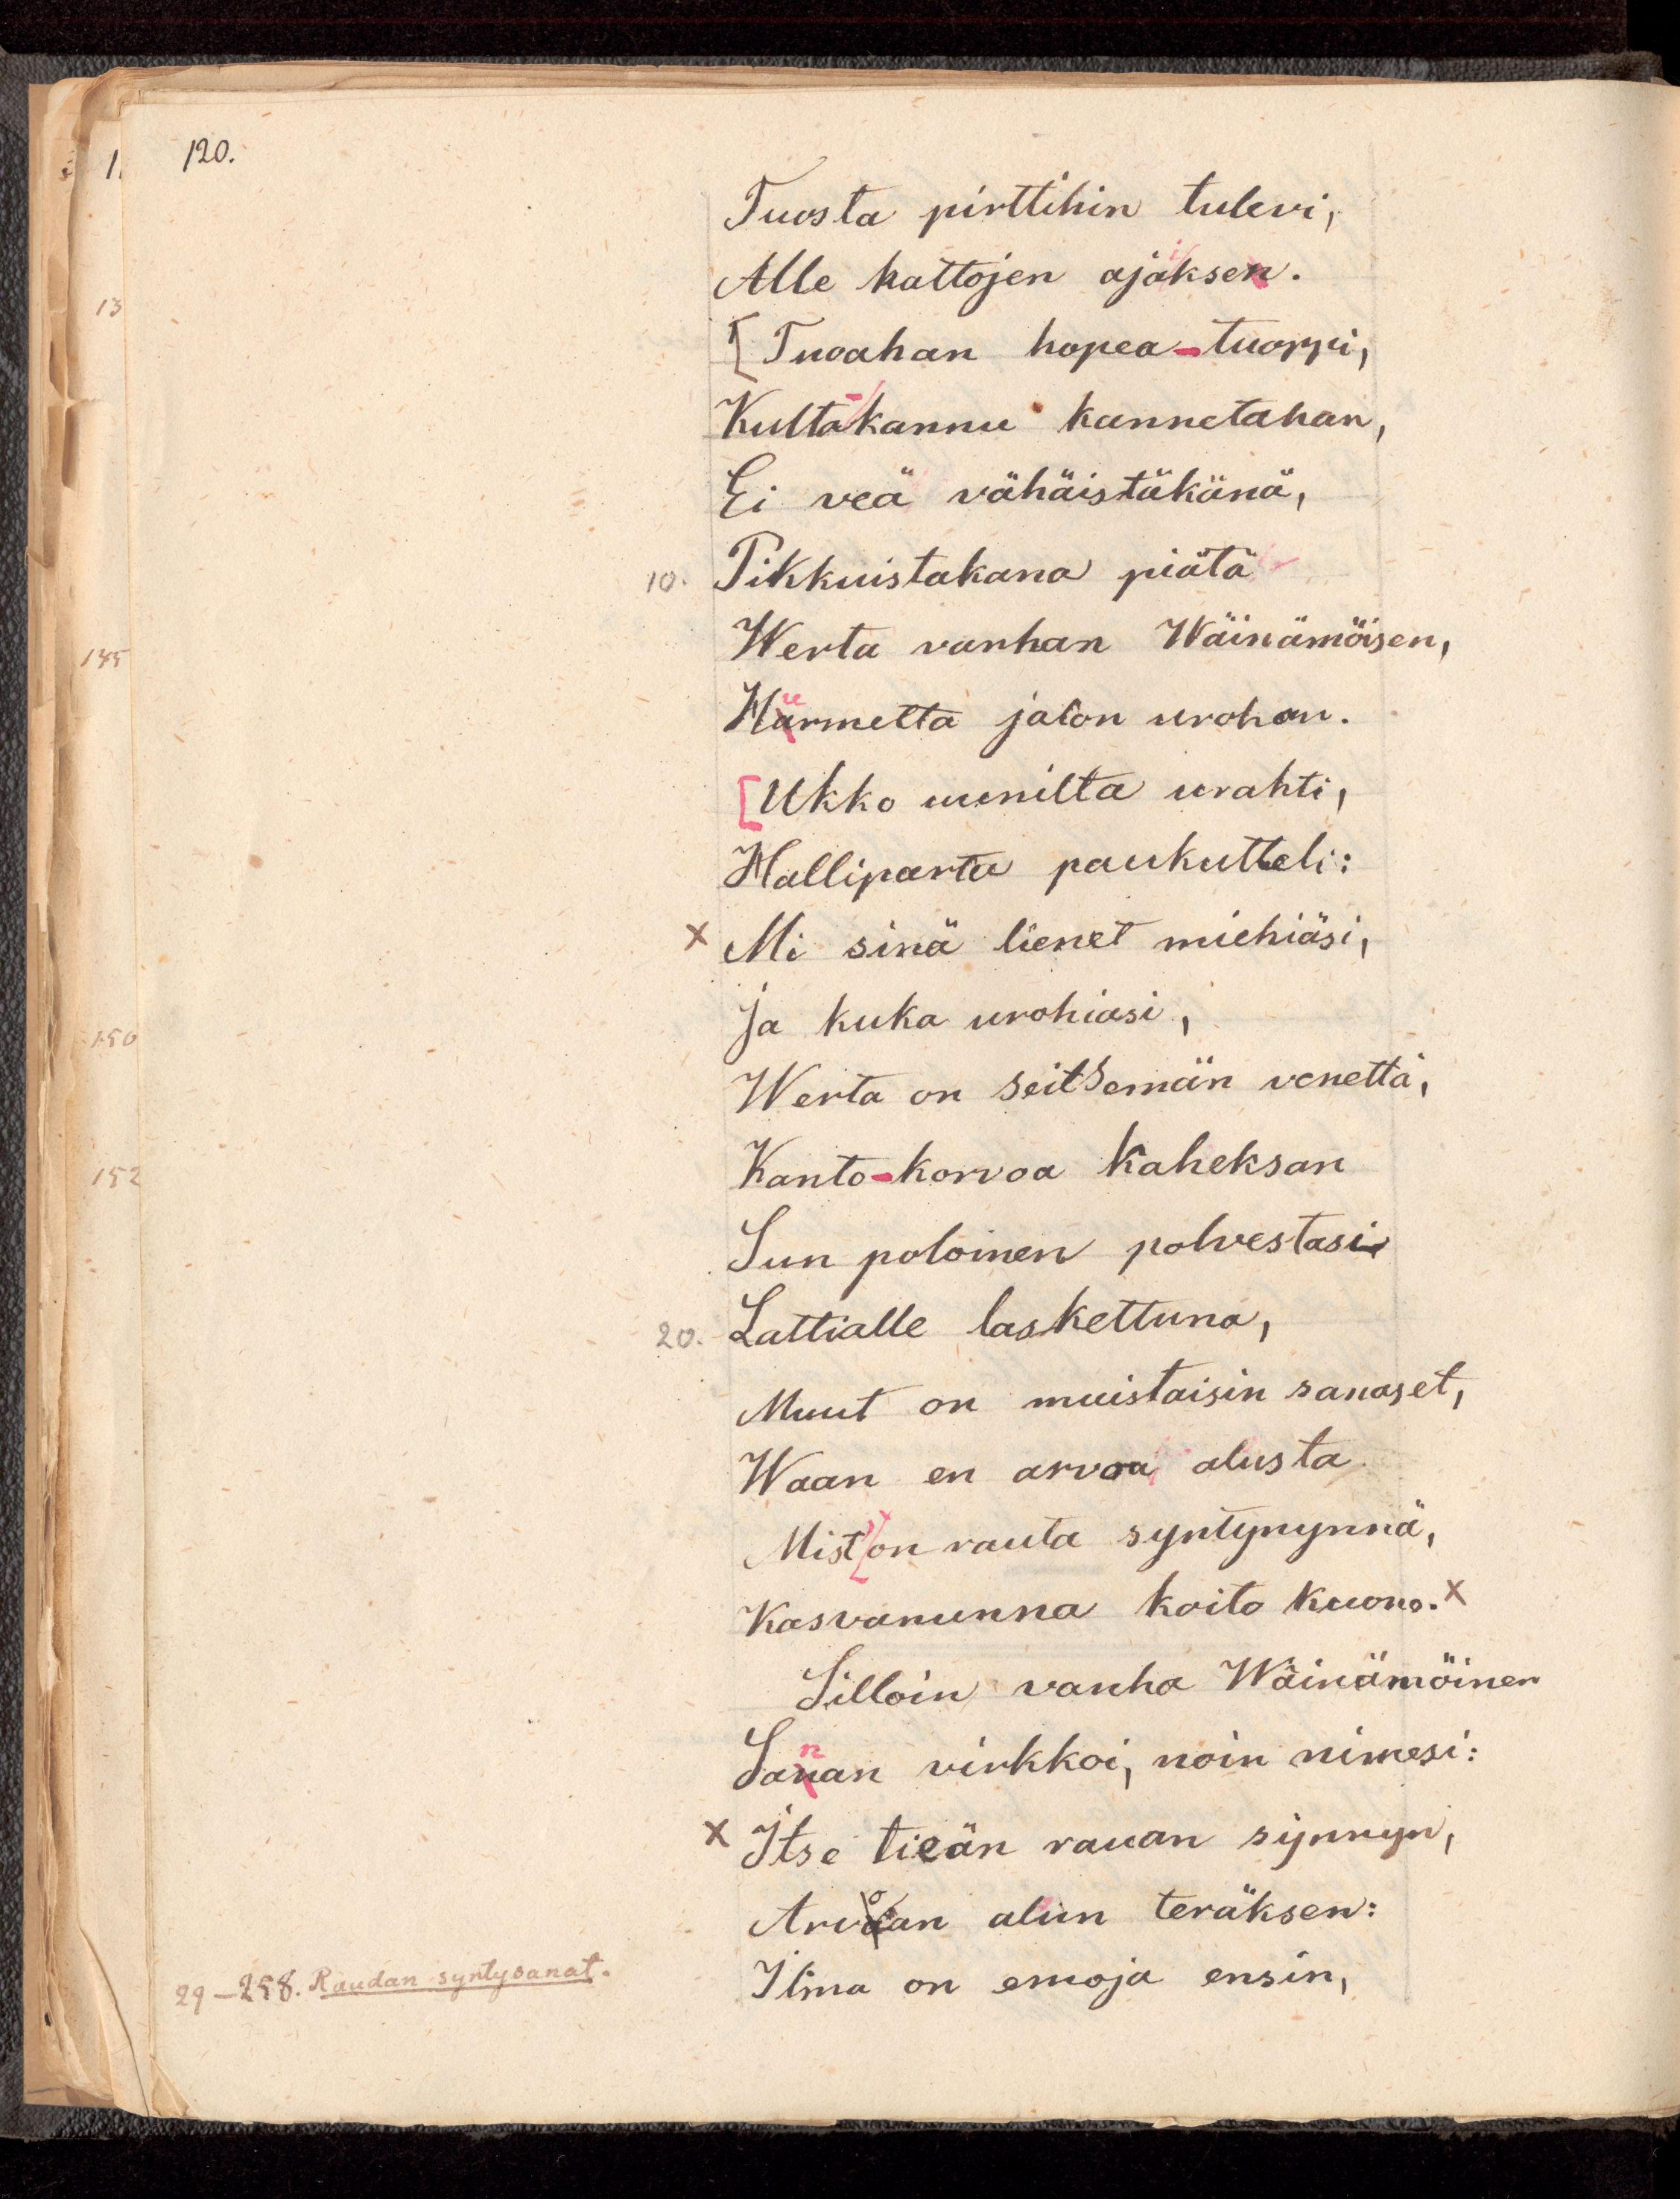 120.
Tuosta pirttihin tulevi,
Alle kattojen ajaiksen.
[Tuoahan hopea-tuoppi,
Kulta-kannu kannetahan,
Ei veä vähäistäkänä,
10. Pikkuistakana piätä
Werta vanhan Wäinämöisen,
Hurmetta jalon urohon.
[Ukko uunilta urahti,
Halliparta paukutteli:
x Mi sinä lienet miehiäsi,
Ja kuka urohiasi,
Werta on seitsemän venettä,
Kanto-korvoa kaheksan
Sun poloinen polvestasi
20. Lattialle laskettuna,
Muut on muistaisin sanaset,
Waan en arvoa alusta
Mist' on rauta syntynynnä,
Kasvanunna koito kuona. x
Silloin vanha Wäinämöinen
Sanan virkkoi, noin nimesi:
x Itse tieän rauan synnyn,
Arvoan alun teräksen:
29–258. Raudan syntysanat.
Ilma on emoja ensin,
13
145
150
152